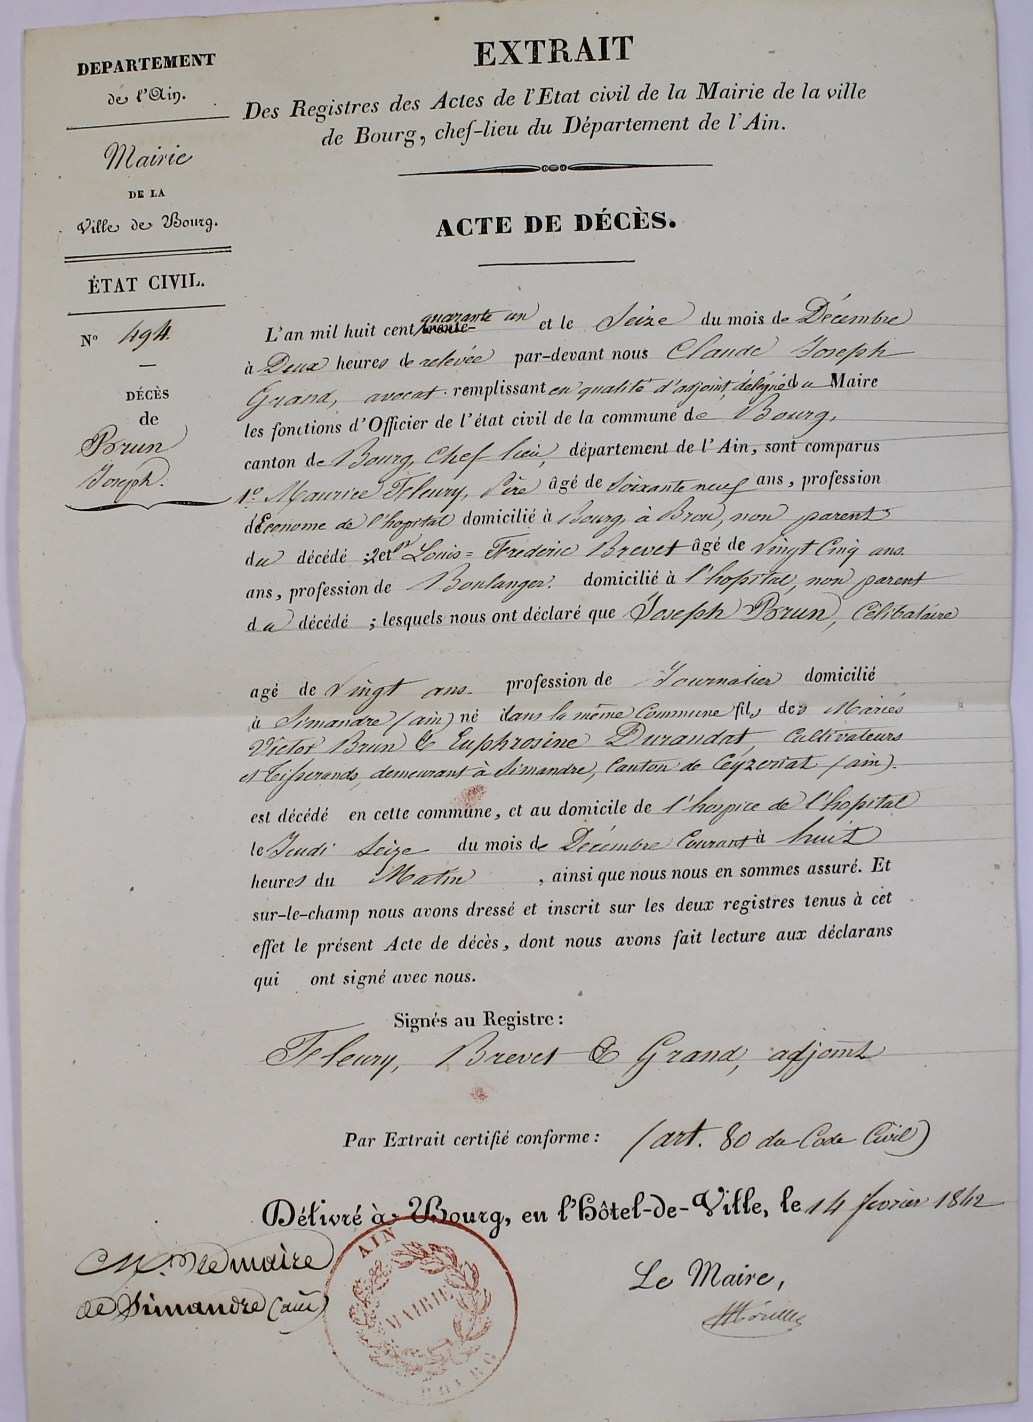 DEPARTEMENT
de l'Ain.
Mairie
DE LA
Ville de Bourg.
ÉTAT CIVIL.
N° 494.
DÉCÈS
de
Brun
Joseph.
EXTRAIT
Des Registres des Actes de l'Etat civil de la Mairie de la ville
de Bourg, chef-lieu du Département de l'Ain.
ACTE DE DÉCÈS.
L'an mil huit cent trente- quarante un et le Seize du mois de Décembre
à Deux heures de relevée par-devant nous Claude Joseph
Grand, avocat remplissant en qualité d'adjoint, délégué du Maire
les fonctions d'Officier de l'état civil de la commune de Bourg,
canton de Bourg, Chef lieu, département de l'Ain, sont comparus
1° Maurice Fleury, Père âgé de Soixante neuf ans, profession
d'Econome de l'hopital domicilié à Bourg, à Brou, non parent
du décédé ; 2et Louis=Frederic Brevet âgé de Vingt Cinq ans.
ans, profession de Boulanger. domicilié à l'hopital, non parent
du décédé ; lesquels nous ont déclaré que Joseph Brun, Célibataire
agé de Vingt ans. profession de Journalier domicilié
à Simandre (ain) né dans la même Commune fils des Mariés
Victor Brun & Euphrosine Durandat, Cultivateurs
et Tisserands, demeurant à Simandre, Canton de Ceyzeriat (ain).
est décédé en cette commune, et au domicile de l'hospice de l'hopital
le Jeudi Seize du mois de Décembre Courant à huit
heures du Matin , ainsi que nous nous en sommes assuré. Et
sur-le-champ nous avons dressé et inscrit sur les deux registres tenus à cet
effet le présent Acte de décès, dont nous avons fait lecture aux déclarans
qui ont signé avec nous.
Signés au Registre :
Fleury, Brevet & Grand, adjoint
Par Extrait certifié conforme : (art. 80 du Code Civil)
Délivré à Bourg, en l'Hôtel-de-Ville, le 14 février 1842
M. le maire
de Simandre (ain)
AIN
MAIRIE
BOURG
Le Maire,